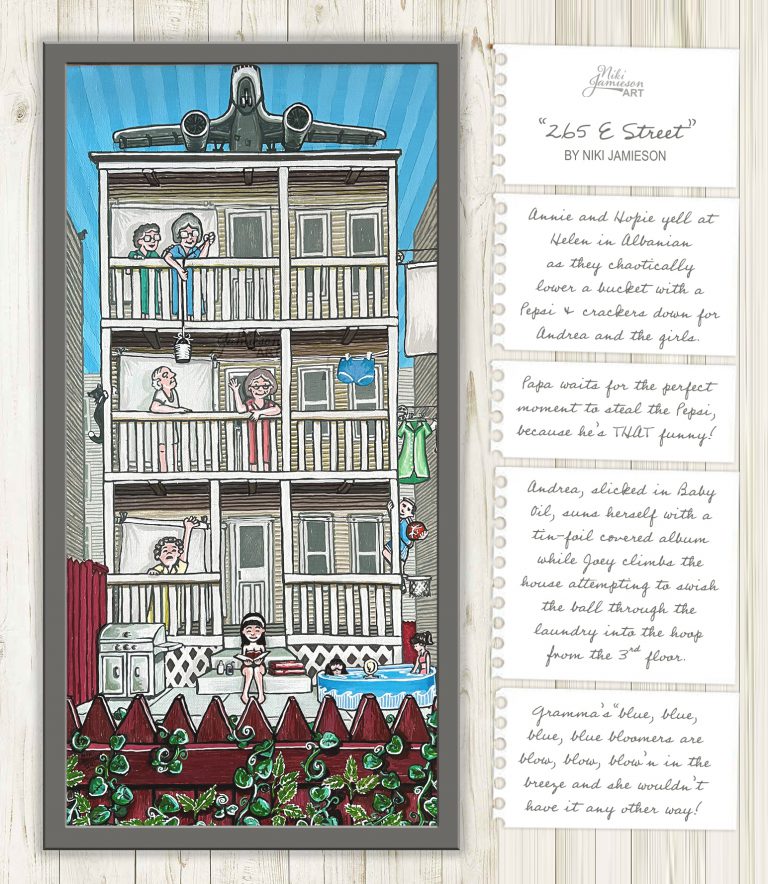 Niki
Jamieson
ART
"265 E Street"
BY NIKI JAMIESON
Annie and Hopie yell at
Helen in Albanian
as they chaotically
lower a bucket with a
Pepsi & crackers down for
Andrea and the girls.
Papa waits for the perfect
moment to steal the Pepsi,
because he's THAT funny!
Andrea, slicked in Baby
Oil, suns herself with a
tin-foil covered album
while Joey climbs the
house attempting to swish
the ball through the
laundry into the hoop
from the 3rd floor.
Gramma's "blue, blue,
blue, blue bloomers are
blow, blow, blow'n in the
breeze and she wouldn't
have it any other way!
Jamieson
ART